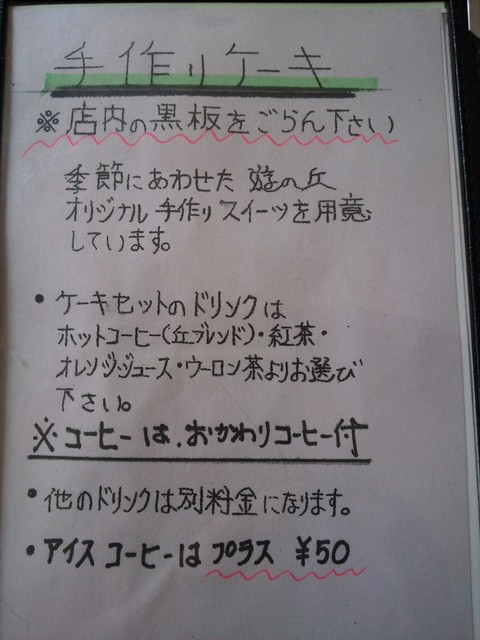 手作りケーキ
※店内の黒板をごらん下さい
季節にあわせた 遊の丘
オリジナル 手作りスイーツを用意
しています。
・ケーキセットのドリンクは
ホットコーヒー(丘ブレンド)・紅茶・
オレンジジュース・ウーロン茶よりお選び
下さい。
※コーヒーは、おかわりコーヒー付
・他のドリンクは別料金になります。
・アイスコーヒーは プラス ¥50